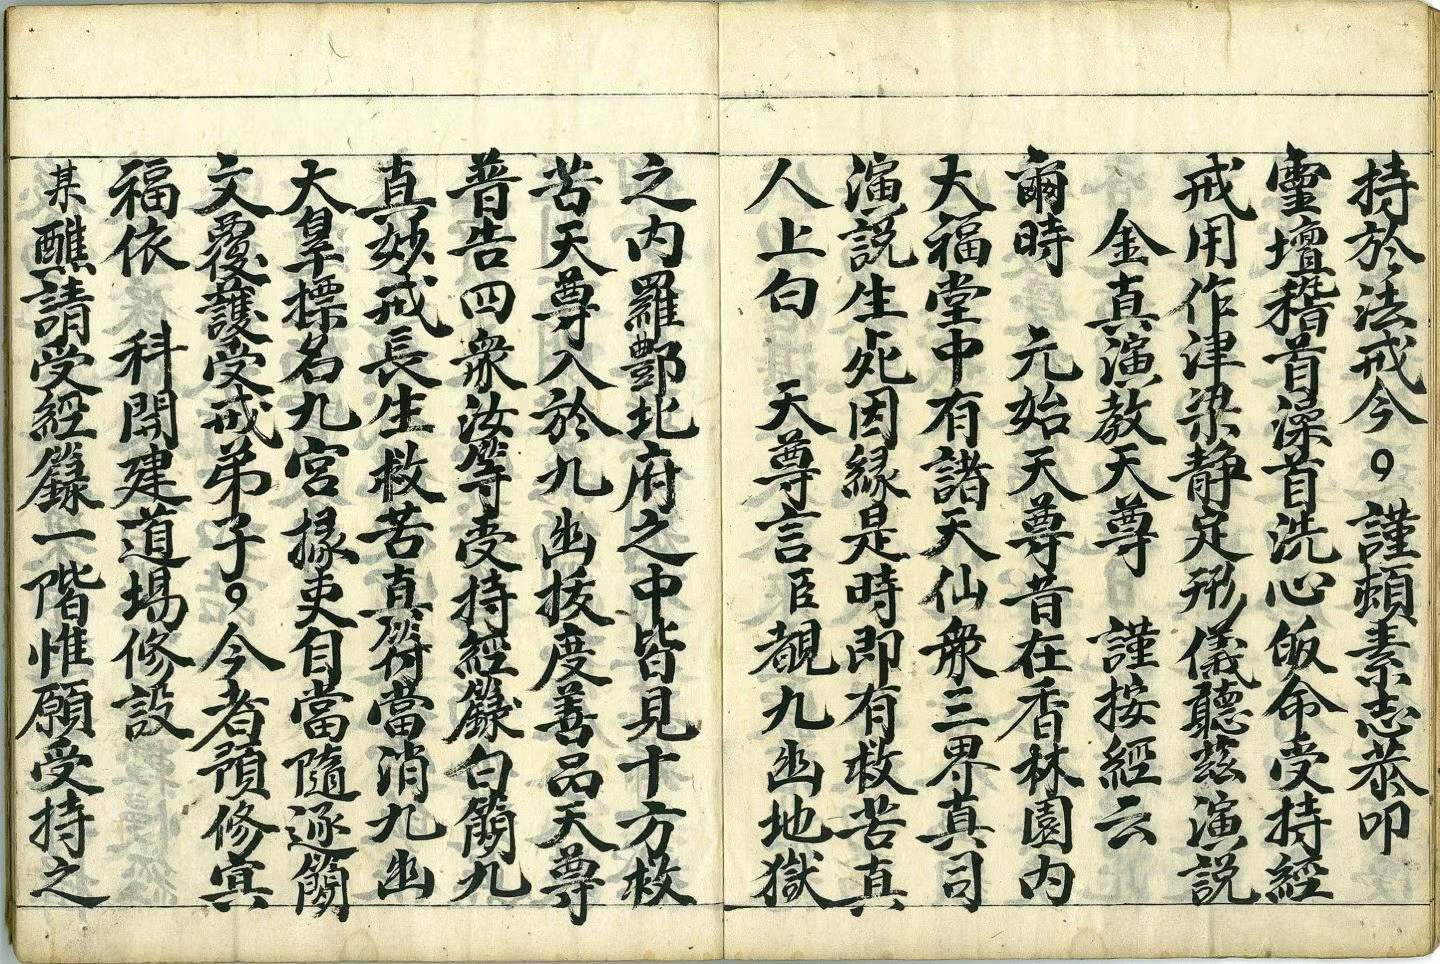 持於法戒今○謹傾素志恭叩
靈壇稽首澡首洗心皈命受持經
戒用作津梁静定形儀聽兹演説
金真演教天尊　謹按經云
爾時　元始天尊昔在香林園内
大福堂中有諸天仙衆三界真司
演説生死因緣是時即有救苦真
人上白　天尊言臣覩九幽地獄
之内羅酆北府之中皆見十方救
苦天尊入於九幽拔度善品天尊
普告四衆汝等受持經籙白簡九
真妙戒長生救苦真符當消九幽
大皇標名九宫掾吏自當隨逐簡
文覆護受戒弟子○今者預修寘
福依　科開建道場修設
某醮請受經籙一階惟願受持之